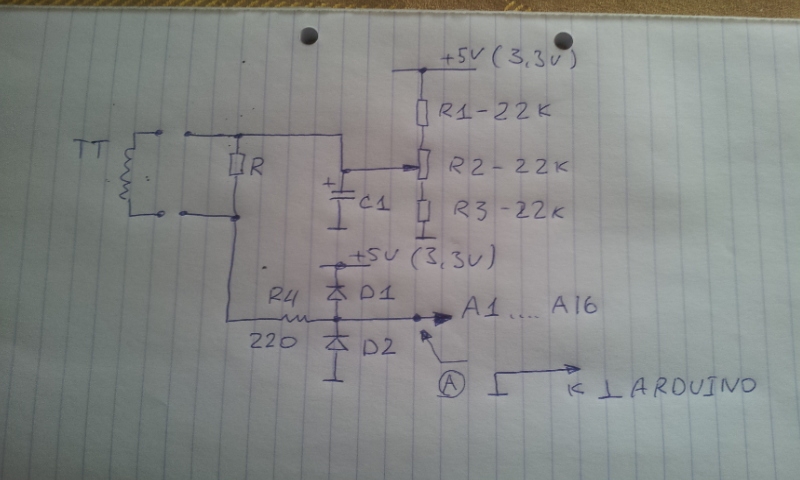 +5V (3,3V)
TT
R1-22K
R
R2-22K
+
C1
R3-22K
+5V (3,3V)
R4
D1
A1....A16
220
D2
A
K ⊥ ARDUINO